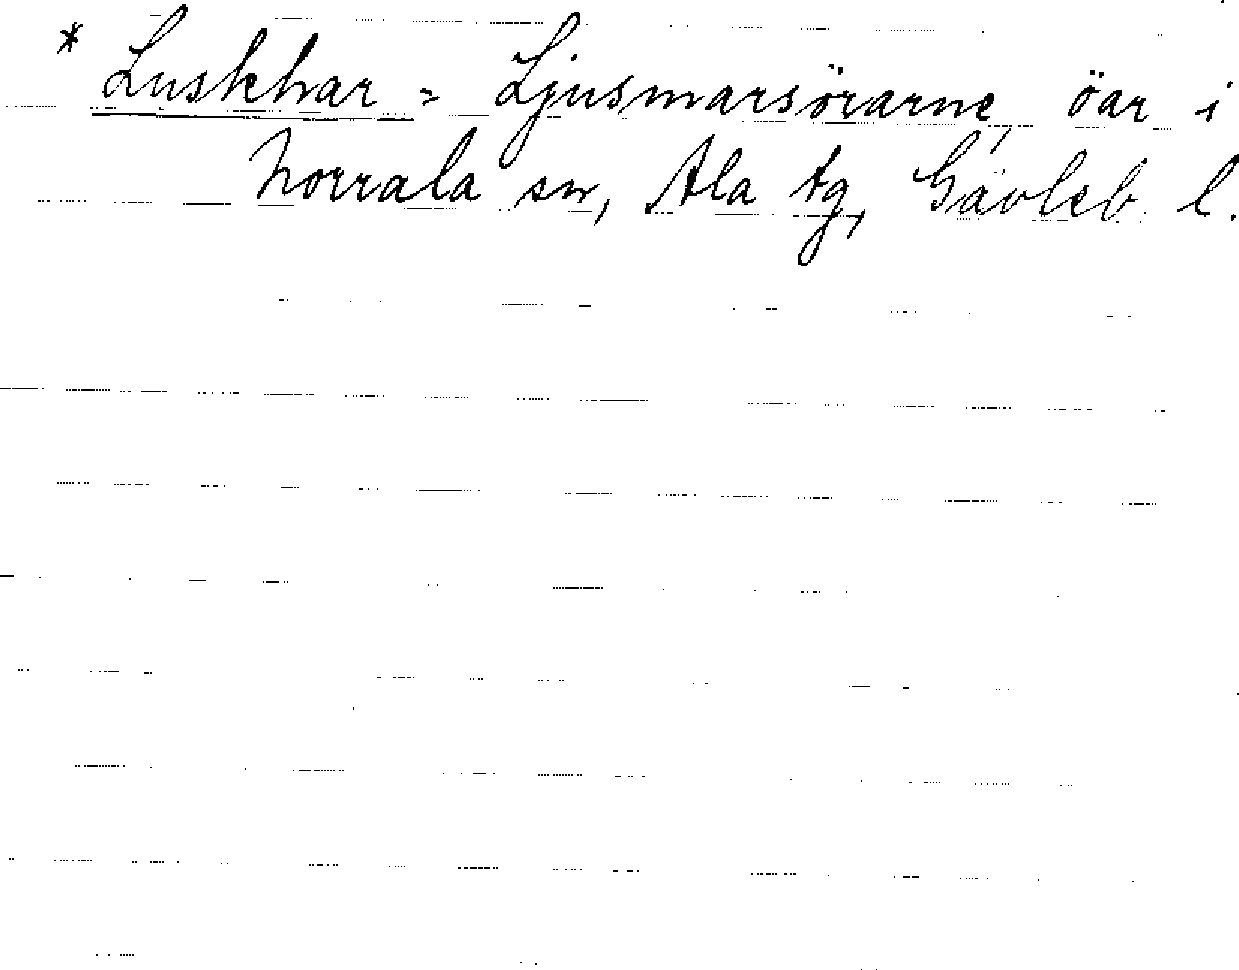 * Luskhar = Ljusmarsörarne, öar i
Norrala sn, Ala tg, Gävleb. l.